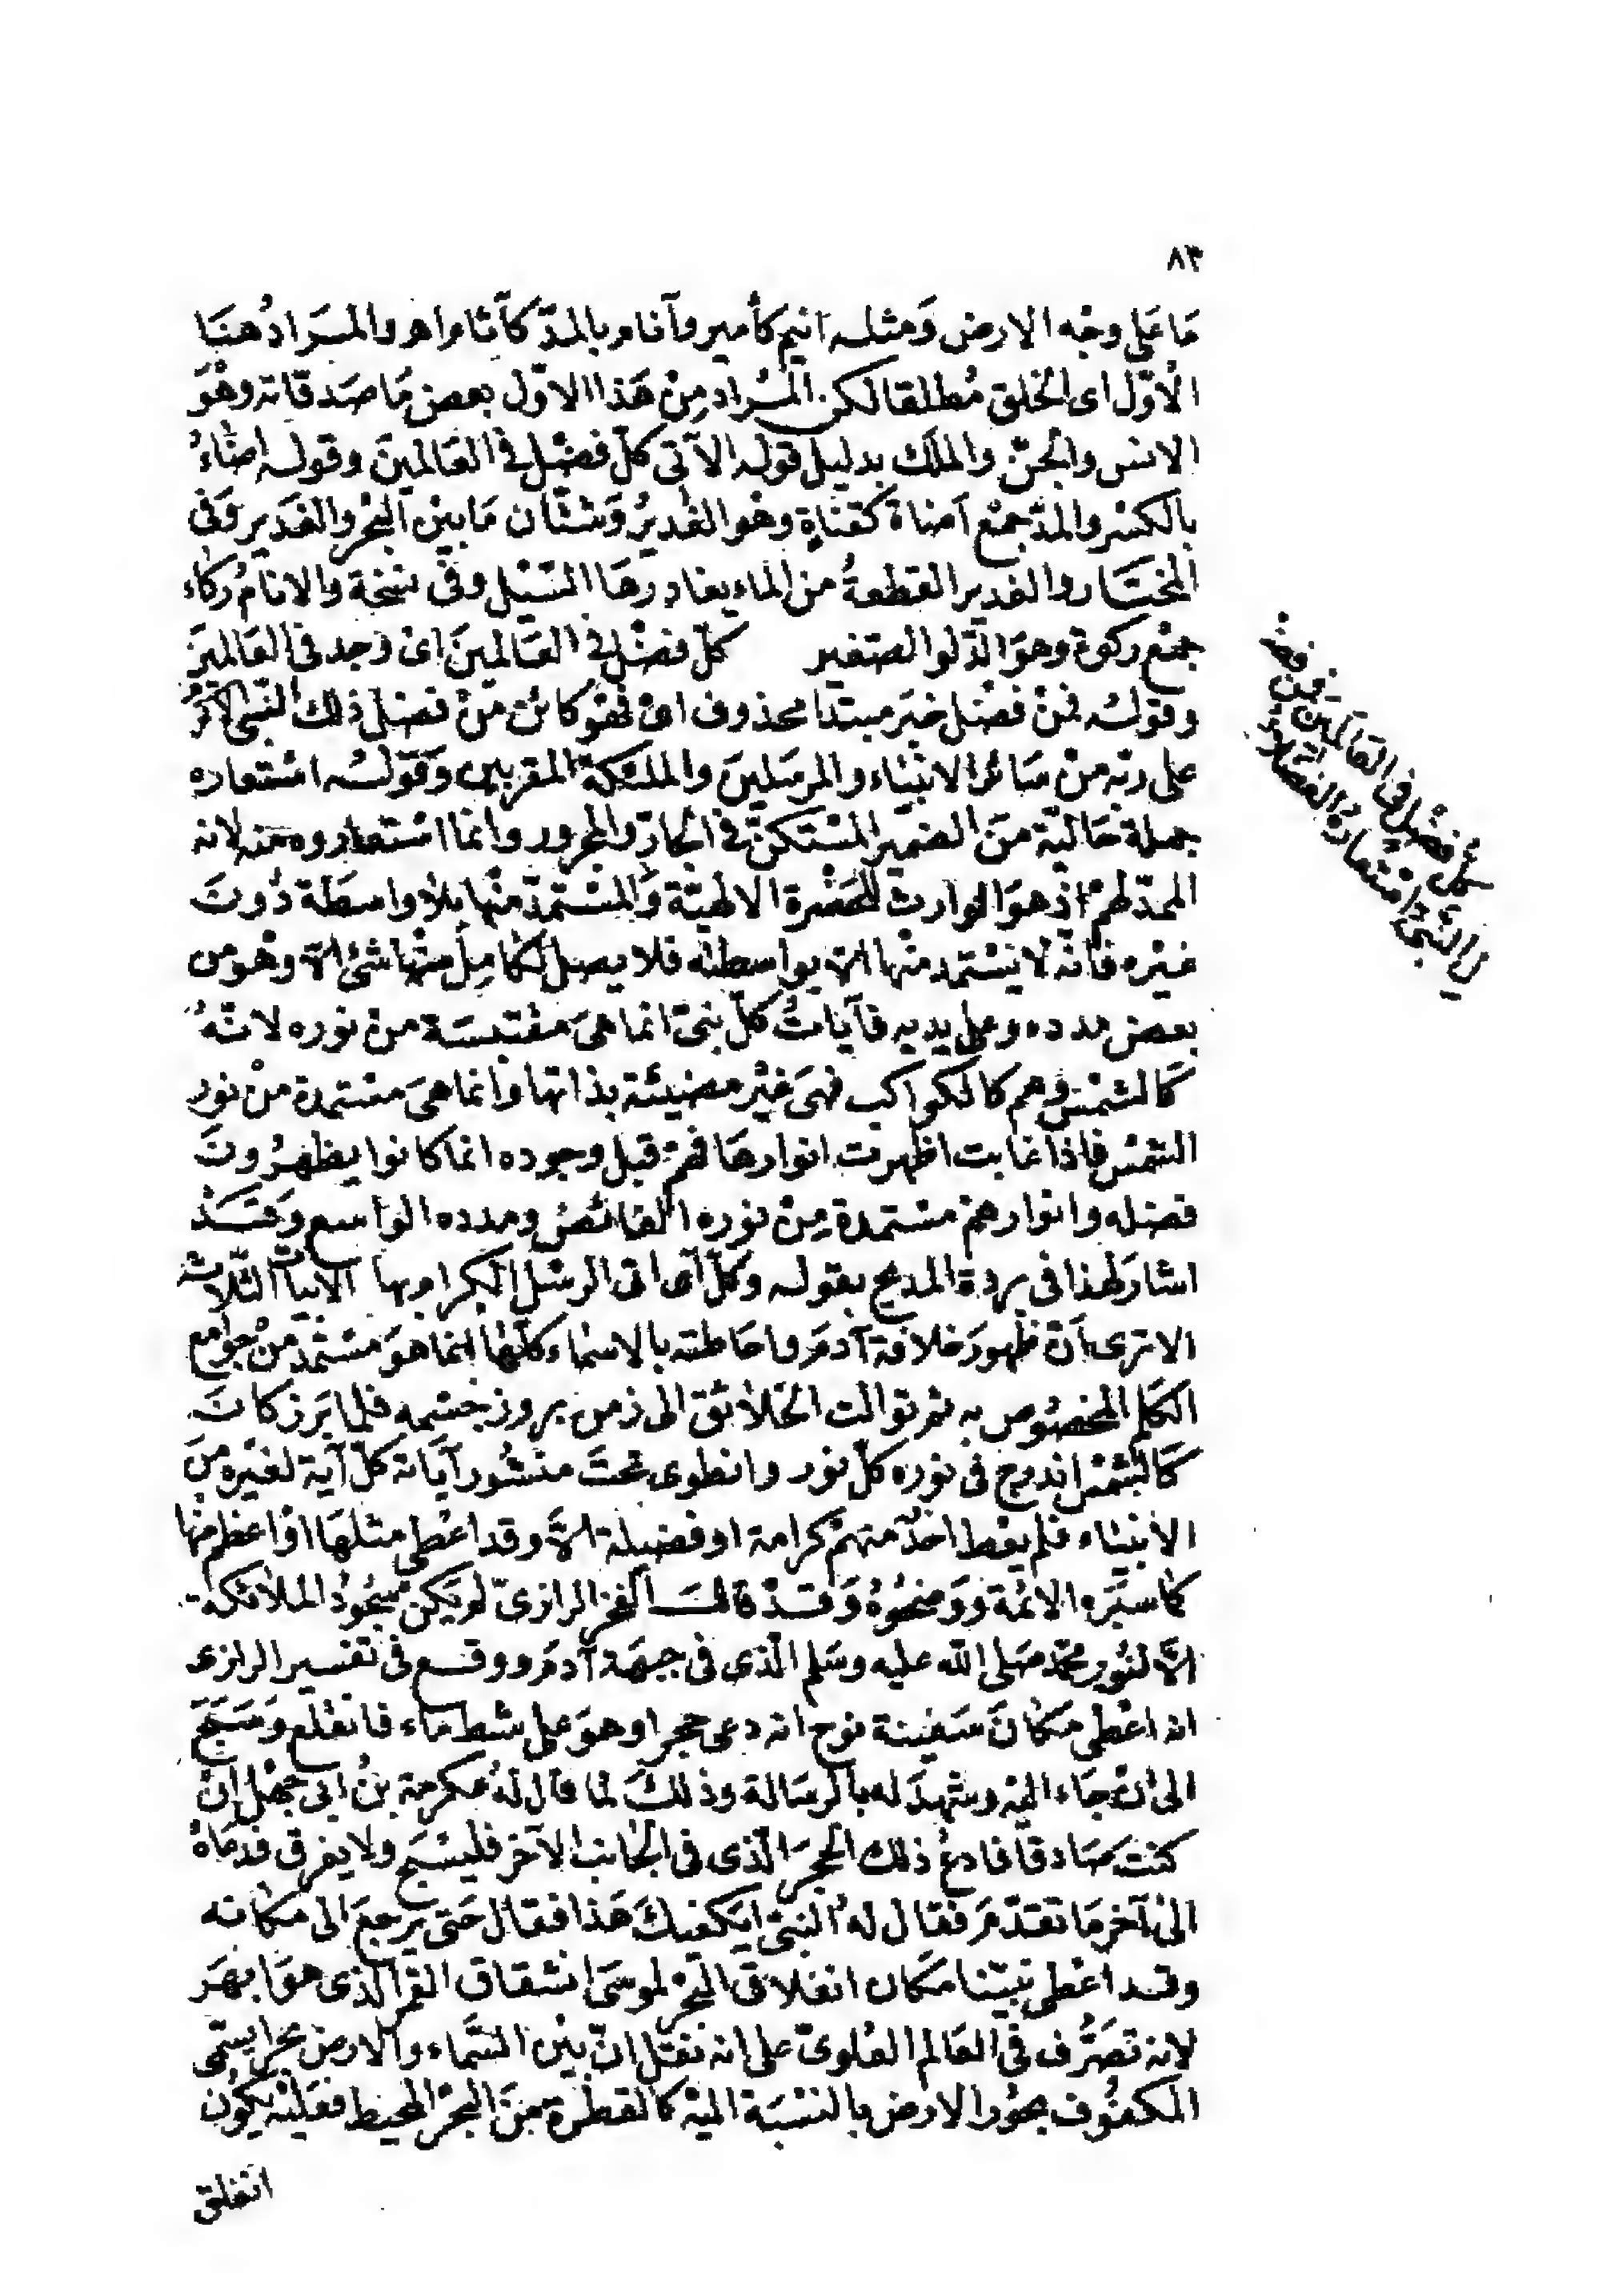 ٨٣
مَا عَلى وجْه الارض وَمثله انيم كأمير وآنام بالمدّ كآثام اهـ والمرَادُ هنَا
الاوّل اى الخلق مُطلقا لكن المُراد مِنْ هَذا الاوّل بعض مَا صَدقاته وهُوَ
الانس والجنّ والملَك بدليل قوله الآتى كلّ فضْل فى العَالمينَ وقوله اضَاءُ
بالكسْر والمدّ جمْع اَضاة كقنَاةٍ وهُو الغَديرُ وَشتّان مَا بيْن البحْر والغَدير وَفى
المختَار والغدير القطعةُ من الماء يغادرهَا السّيْل وفى نسْخة والانامُ ركاء
جمْع ركوة وهوَ الدّلو الصّغير كلّ فضْل فى العَالمينَ اىْ وُجد فى العَالمينَ
وقولُه فمنْ فضْل خبَر مبتدا محذوف اىْ فهُو كائن مِنْ فضْل ذلك النّبى الاكرَم
على ربّه منْ سَائر الانبيَاء والمرسَلينَ والملئكَة المقربين وَقولُه اسْتعاره
جملة حَاليّة منَ الضمير المسْتكنّ فى الجارّ والمجرور وانما اسْتعاروه منه لانه
الممدّ لهمْ اذْ هوَ الوارث للحضْرة الالهيّة وَالمسْتمدّ منْها بلا واسطَة دُونَ
غيْره فانّه لا يسْتمد منْها الاّ بواسطته فلا يصل لكَامِل منْها شئ الاّ وهُو من
بعض مدده وعلى يديه فآيَاتُ كلّ نبىّ انما هىَ مقْتبسَة منْ نوره لانّهُ
كَالشمْس وهم كالكواكب فهىَ غيْر مضيئة بذاتها وَانما هىَ مسْتمدة منْ نور
الشمْس فاذا غابت اظهرت انوارهَا فهمْ قبل وجوده انما كانوا يظهرُونَ
فضله وانوارهمْ مسْتمدة مِنْ نوره الفائض ومدده الواسع وَقَدْ
اشارَ لهذا فى بردة المديح بقوله وكلّ آى اتى الرسْل الكرام بها الابيَات الثّلاث
الا ترى انّ ظهورَ خلافة آدمَ واحَاطته بالاسْماء كلّها انما هوَ مسْتمد منْ جوَامع
الكَلِم المخصُوص به ثم توالت الخلائق الى زمن بروز جسْمه فلما برَز كانَ
كَالشمْس اندرج فى نوره كلّ نور وانطوى تحتَ منْشُور آيَاته كلّ آية لغيْره منَ
الانبيَاء فلم يعْط احَدٌ منهمْ كرامة او فضيلة الاَّ وقد اعْطى مثلهَا اوْ اعْظم منْها
كما سبَره الائمة وَوَضحُوهُ وَقدْ قالَ الفخْر الرازىّ لم يكن سُجُودُ الملائكة
الاَّ لنُور محمّد صَلى اللّه عليه وسَلم الّذى فى جبهَة آدمَ ووقع فى تفسير الرازى
انه اعْطى مَكانَ سَفينة نوح انه دعى حجرا وهوَ على شط مَاء فانقلع وَسَبَحَ
الى انْ جَاء اليْه وشهدَ له بالرسَالة وذلكَ لمّا قال لهُ عكرمة بنُ ابى جهْل اِنْ
كنت صَادقاً فادعُ ذلك الحجرَ الّذى فى الجَانب الآخر فليسْبَح ولا يغرق فدعَاهُ
الى آخر مَا تقدّمَ فقال لهُ النبىّ ايَكفيكَ هَذا فقال حَتى يرجعَ الى مكانه
وقد اعْطى نبيّنا مكَان انفلاق البَحْر لموسَى انشقاق القمر الذى هوَ ابهَر
لانه تصَرُّف فى العَالم العُلوىّ على انه نقل انّ بيْن السَّماء والارض بحرا يسَمّى
المكفُوف بحُور الارض بالنسْبَة اليْه كالقطرة منَ البحْر المحيط فعَليْه يَكون
انفلق
كلُّ فضْل فى العَالمينَ فمن فضْ
ل النّبىّ استعارهُ الفضَلاءُ